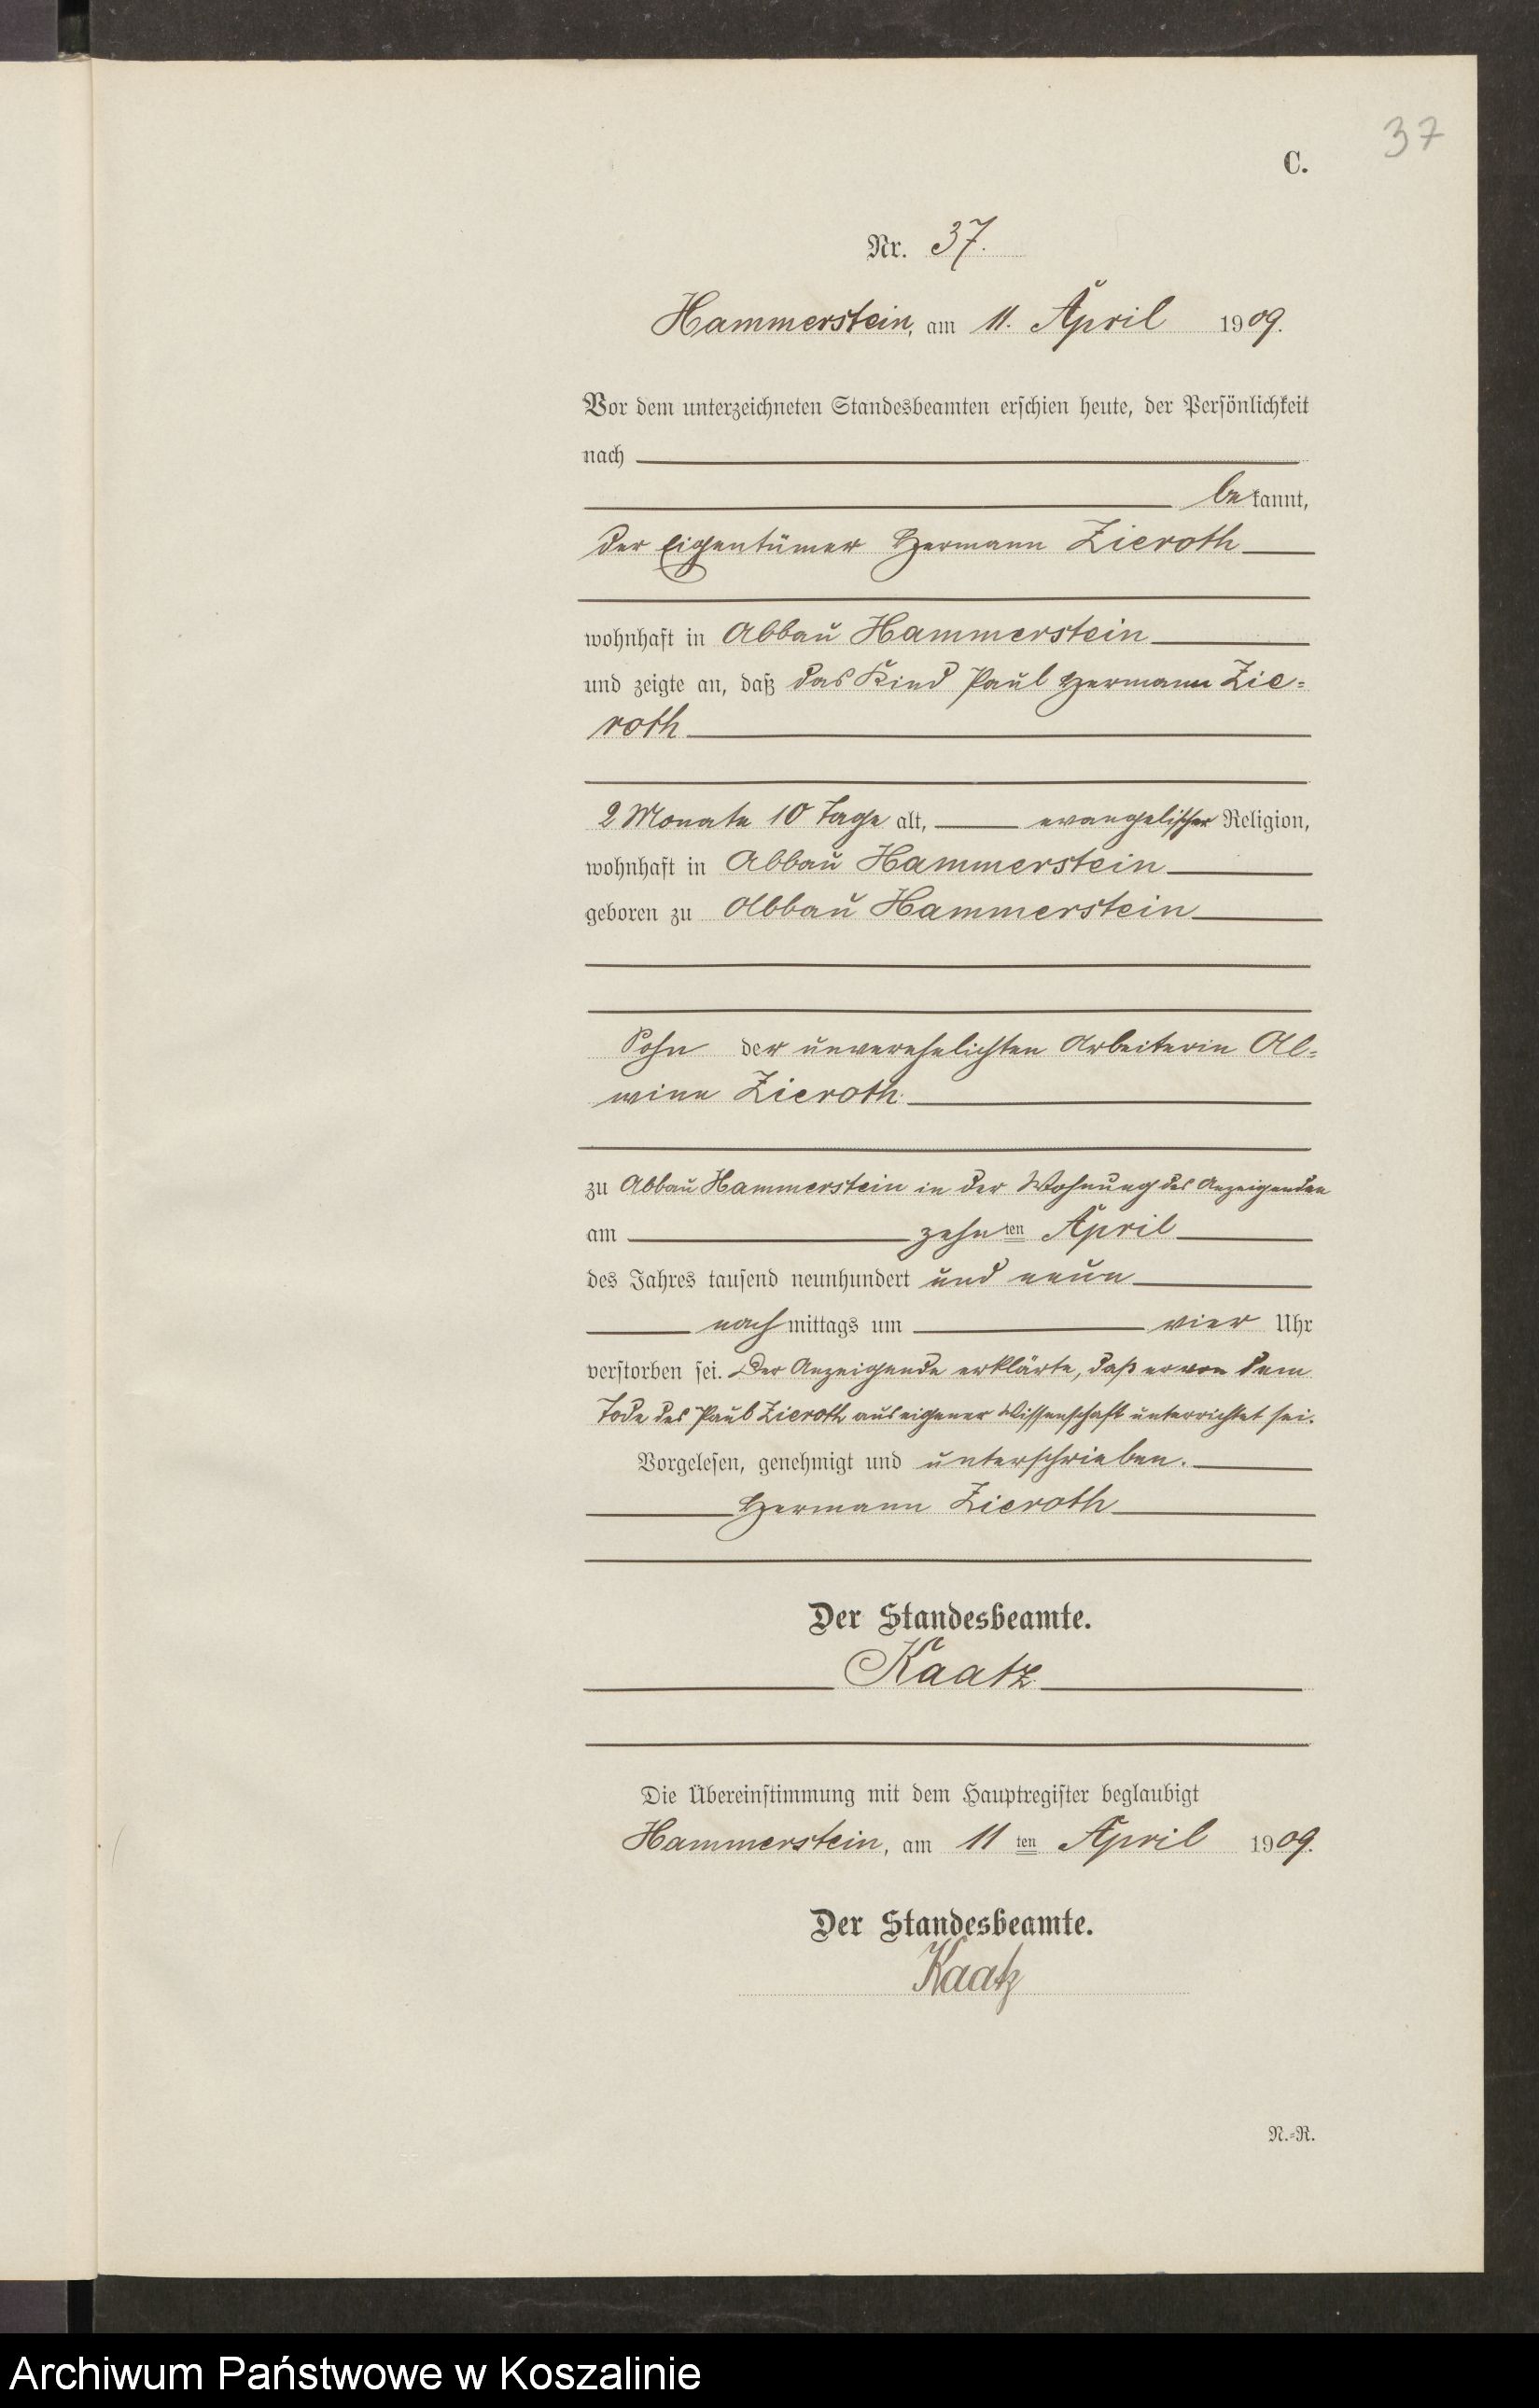 37
C.
Nr. 37.
Hammerstein, am 11. April 1909.
Vor dem unterzeichneten Standesbeamten erschien heute, der Persönlichkeit
nach
bekannt,
der Eigentümer Hermann Zieroth
wohnhaft in Abbau Hammerstein
und zeigte an, daß das Kind Paul Hermann Zie=
roth
2 Monate 10 Tage alt, evangelischer Religion,
wohnhaft in Abbau Hammerstein
geboren zu Abbau Hammerstein
Sohn der unverehelichten Arbeiterin Al=
wine Zieroth
zu Abbau Hammerstein in der Wohnung des Anzeigenden
am zehnten April
des Jahres tausend neunhundert und neun
nachmittags um vier Uhr
verstorben sei. Der Anzeigende erklärte, daß er von dem
Tode des Paul Zieroth aus eigener Wissenschaft unterrichtet sei.
Vorgelesen, genehmigt und unterschrieben.
Hermann Zieroth
Der Standesbeamte.
Kaatz
Die Übereinstimmung mit dem Hauptregister beglaubigt
Hammerstein, am 11ten April 1909.
Der Standesbeamte.
Kaatz
N.=R.
Archiwum Państwowe w Koszalinie